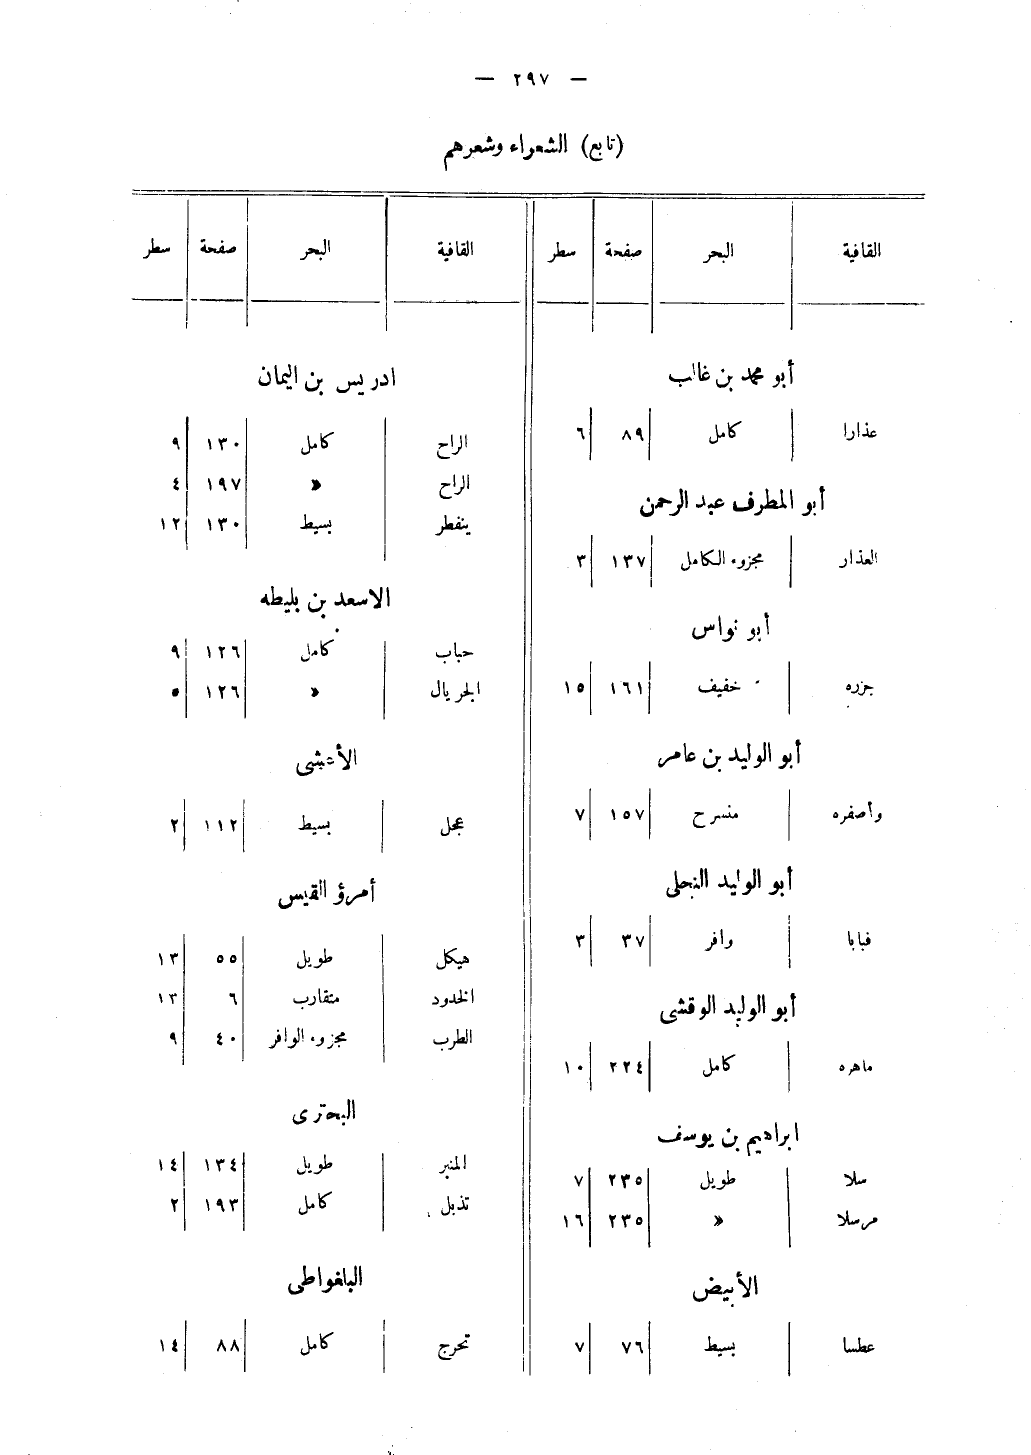 — ٢٩٧ —
(تابع) الشعراء وشعرهم
القافية البحر صفحة سطر
أبو محمد بن غالب
عذارا كامل ٨٩ ٦
أبو المطرف عبد الرحمن
العذار مجزوء الكامل ١٣٧ ٣
أبو نواس
جزره خفيف ١٦١ ١٥
أبو الوليد بن عامر
وأصفره منسرح ١٥٧ ٧
أبو الوليد النجلى
فبابا وافر ٣٧ ٣
أبو الوليد الوقشى
ماهره كامل ٢٢٤ ١٠
ابراهيم بن يوسف
سلا طويل ٢٣٥ ٧
مرسلا » ٢٣٥ ١٦
الأبيض
عطسا بسيط ٧٦ ٧
القافية البحر صفحة سطر
ادريس بن اليمان
الراح كامل ١٣٠ ٩
الراح » ١٩٧ ٤
ينفطر بسيط ١٣٠ ١٢
الاسعد بن بليطه
حباب كامل ١٢٦ ٩
الجريال » ١٢٦ ٥
الأعشى
عجل بسيط ١١٢ ٢
أمرؤ القيس
هيكل طويل ٥٥ ١٣
الخدود متقارب ٦ ١٣
الطرب مجزوء الوافر ٤٠ ٩
البحترى
المنبر طويل ١٣٤ ١٤
تذبل كامل ١٩٣ ٢
الباغواطى
تحرج كامل ٨٨ ١٤